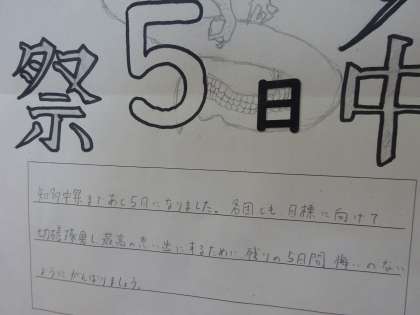 祭5日中
知多中祭まであと5日になりました。各団とも、目標に向けて
切磋琢磨し最高の思い出にするために残りの5日間 悔いのない
ようにがんばりましょう。